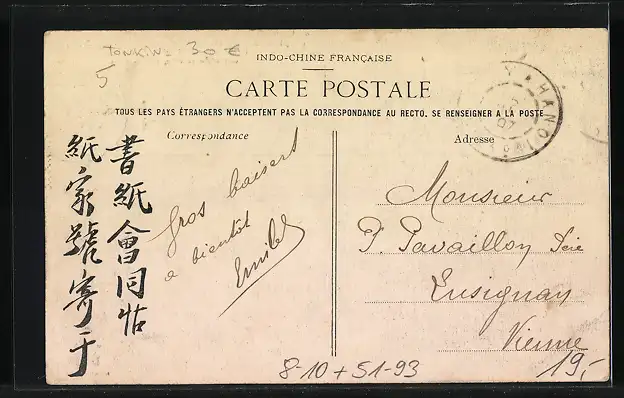 TONKIN 30 €
5
INDO-CHINE FRANÇAISE
CARTE POSTALE
TOUS LES PAYS ÉTRANGERS N'ACCEPTENT PAS LA CORRESPONDANCE AU RECTO. SE RENSEIGNER A LA POSTE
Correspondance
Adresse
HANOI
07
書紙會同怙
紙家號寄于
Gros baisers
a bientôt
Emile
Monsieur
P. Pavaillon Père
Lusignan
Vienne
8-10+51-93
19,-